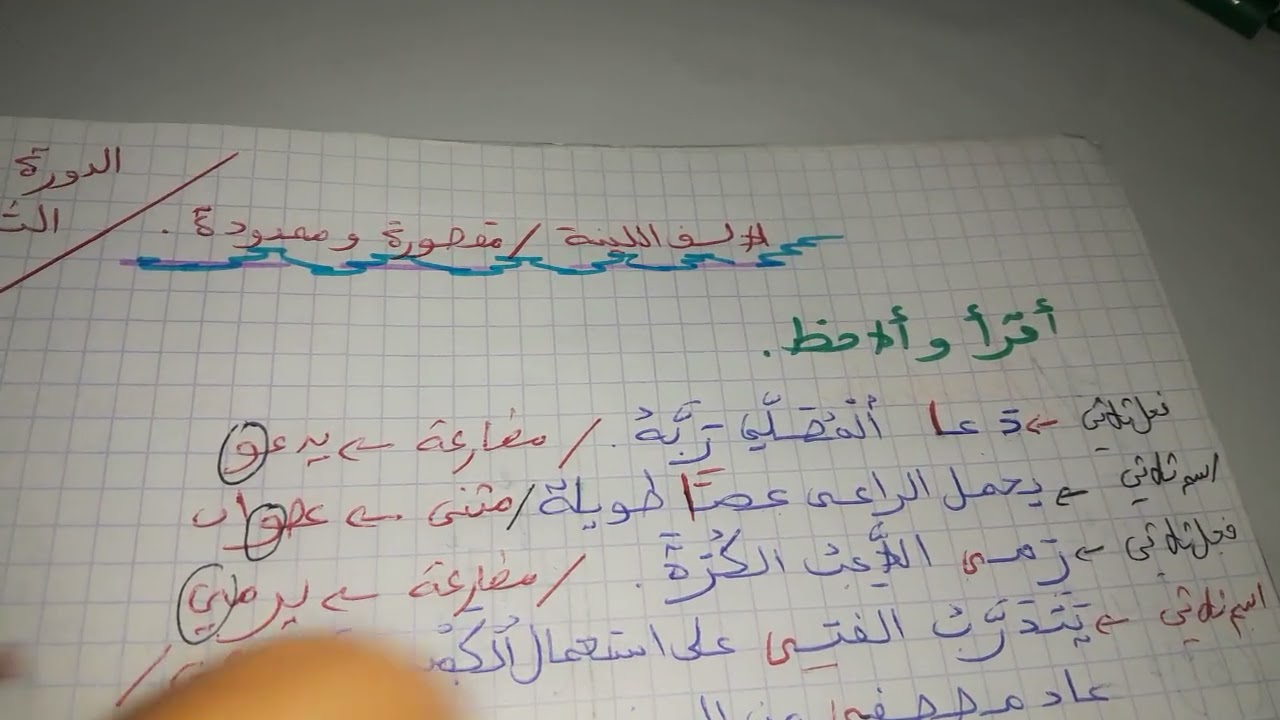 الدورة
الألف اللينة / مقصورة وممدودة.
أقرأ وألاحظ.
فعل ثلاثي ← دعا ٱلْمُصَلِّي رَبَّهُ. / مضارعة ← يدعو
اسم ثلاثي ← يحمل الراعي عصًا طويلة / مثنى ← عصوان
فعل ثلاثي ← رَمى اللَّاعبُ الكُرَةَ. / مضارعة ← يرمي
اسم ثلاثي ← يَتَدَرَّبُ الفتى على استعمال
عاد مصطفى من